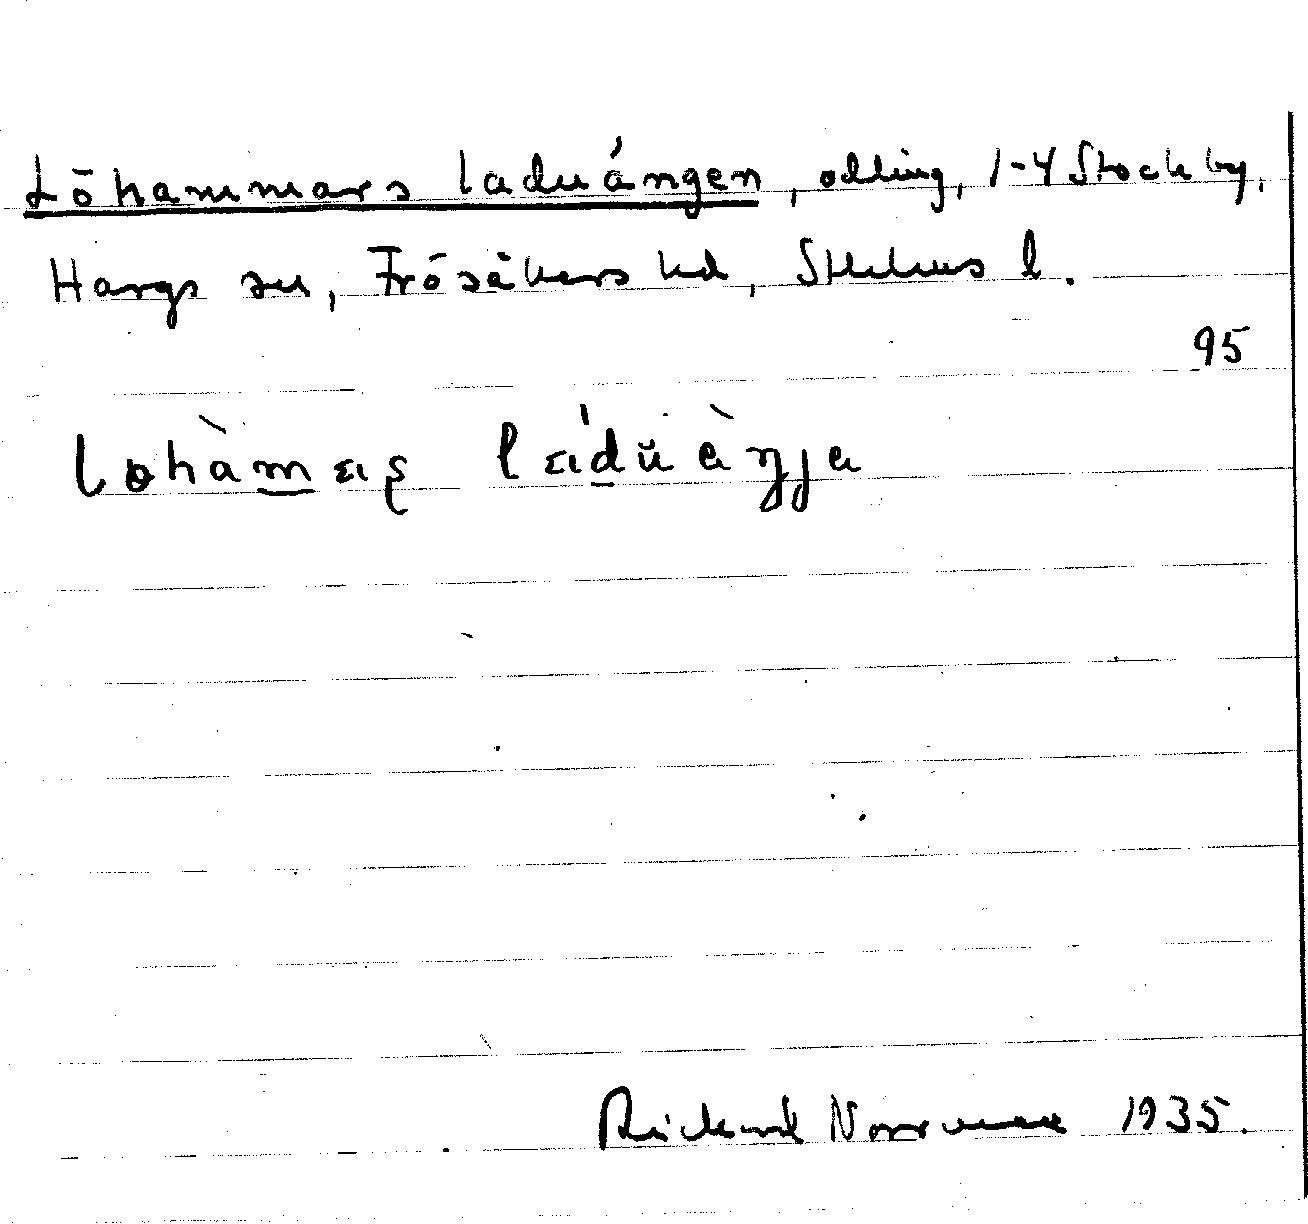 Löhammars laduängen, odling, 1-4 Stockby,
Hargs sn, Frösåkers hd, Sthlms l.
95
Rickard Norrman 1935.